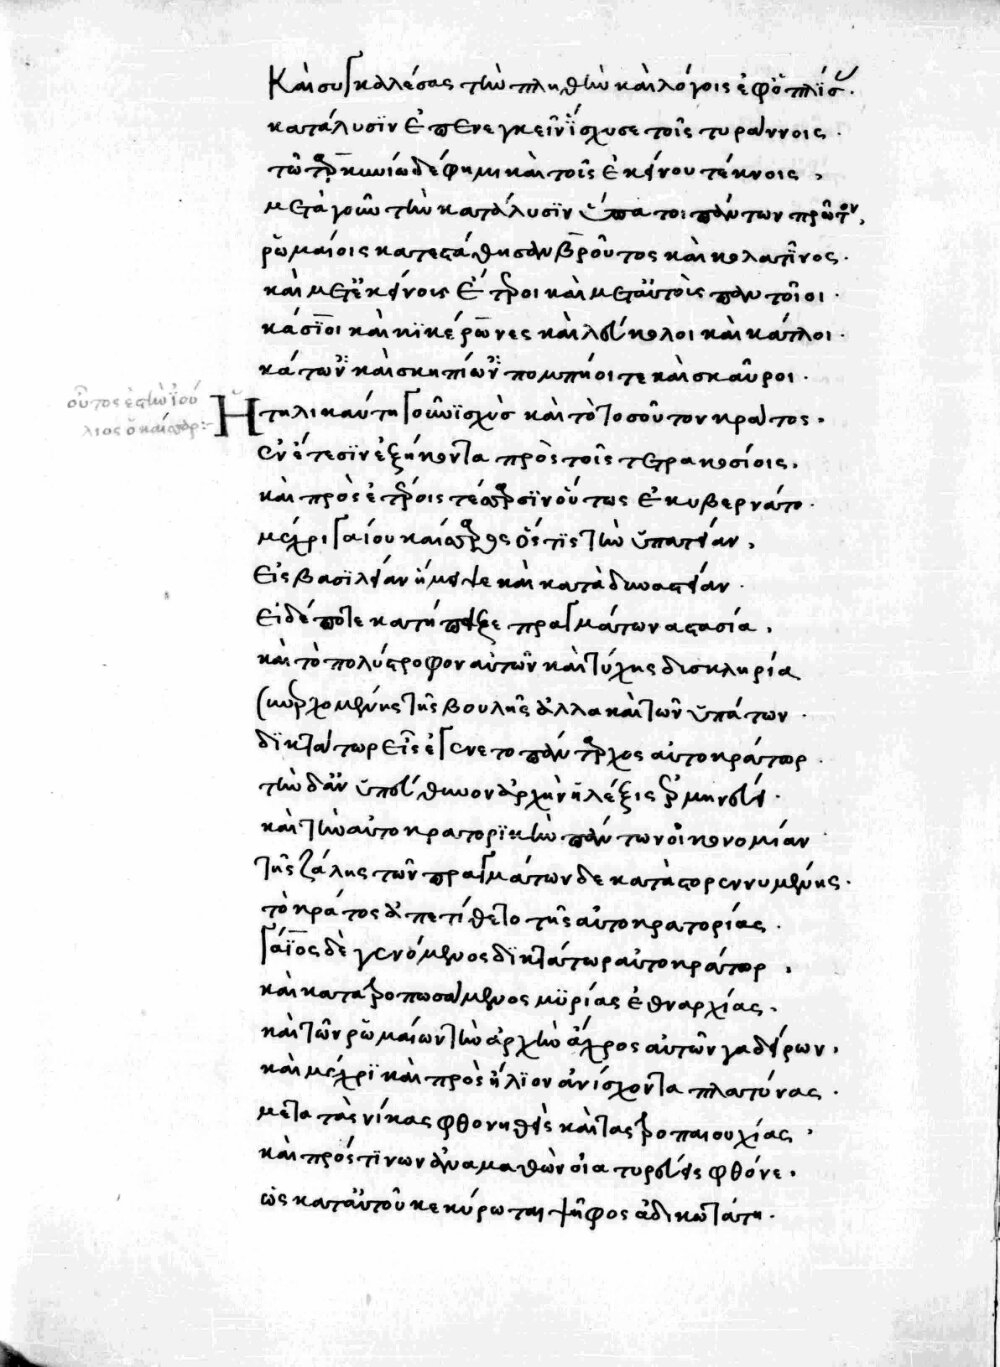 Καὶ συγκαλέσας τὴν πληθὺν καὶ λόγοις ἐφοπλίσας.
κατάλυσιν ἐπενεγκεῖν ἴσχυσε τοῖς τυράννοις.
τῷ Ταρκυνίῳ δέ φημι καὶ τοῖς ἐκείνου τέκνοις,
μετὰ γοῦν τὴν κατάλυσιν ὕπατοι πάντων πρῶτον,
ῥωμαίοις κατεστάθησαν βροῦτος καὶ κολατῖνος.
καὶ μετ' ἐκείνοις ἕτεροι καὶ μετ' αὐτοὺς παντοῖοι.
κάσιοι καὶ κικέρωνες καὶ λεύκολοι καὶ κάτλοι.
κάτων καὶ σκηπίων πομπήοι τε καὶ σκαῦροι.
οὗτος ἐστὶν ἰού
λιος ὁ καῖσαρ:
Ἡ τηλικαύτη γοῦν ἰσχὺς καὶ τὸ τοσοῦτον κράτος.
ἐν ἔτεσιν ἑξήκοντα πρὸς τοῖς τετρακοσίοις,
καὶ πρὸς ἑτέροις τέσσαρσιν οὕτως ἐκυβερνάτο.
μέχρι γαίου καίσαρος ὅστις τὴν ὑπατείαν,
εἰς βασιλείαν ἤμειψε καὶ κατὰ δυναστείαν.
εἰ δέ ποτε κατήπειξε πραγμάτων ἀστασία,
καὶ τὸ πολύστροφον αὐτῶν καὶ τύχης δισκληρία
συναρχομένης τῆς βουλῆς ἀλλὰ καὶ τῶν ὑπάτων.
δικτάτωρ εἷς ἐγένετο πάνταρχος αὐτοκράτωρ.
τὴν δ' ἂν ὑπεύθυνον ἀρχὴν ἡ λέξις ἑρμηνεύει.
καὶ τὴν αὐτοκρατορικὴν πάντων οἰκονομίαν
τῆς ζάλης τῶν πραγμάτων δὲ καταστορεννυμένης.
τὸ κράτος ἀπετίθετο τῆς αὐτοκρατορίας.
γάϊος δὲ γενόμενος δικτάτωρ αὐτοκράτωρ,
καὶ κατατροπωσάμενος μυρίας ἐθναρχίας.
καὶ τῶν ῥωμαίων τὴν ἀρχὴν ἄχρος αὐτῶν γαδείρων,
καὶ μέχρι καὶ πρὸς ἥλιον ἀνίσχοντα πλατύνας.
μετὰ τὰς νίκας φθονηθεὶς καὶ τὰς τροπαιουχίας,
καὶ πρός τινων ἀναμαθὼν οἷα τυρεύεις φθόνε.
ὡς κατ' αὐτοῦ κεκύρωται ψῆφος ἀδικωτάτη.